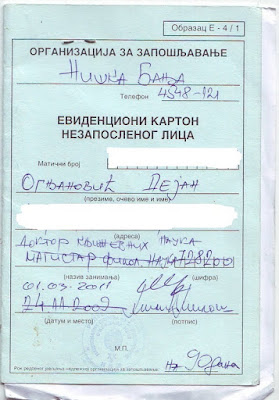 Образац Е - 4 / 1
ОРГАНИЗАЦИЈА ЗА ЗАПОШЉАВАЊЕ
Нишка Бања
Телефон 4548-121
ЕВИДЕНЦИОНИ КАРТОН
НЕЗАПОСЛЕНОГ ЛИЦА
Матични број
Огњановић Дејан
(презиме, очево име и име)
(адреса)
Доктор књижевних наука
магистар филол. наука
(назив занимања) (шифра)
01.03.2011
24.11.2009
(датум и место) (потпис)
М.П.
На 90 дана